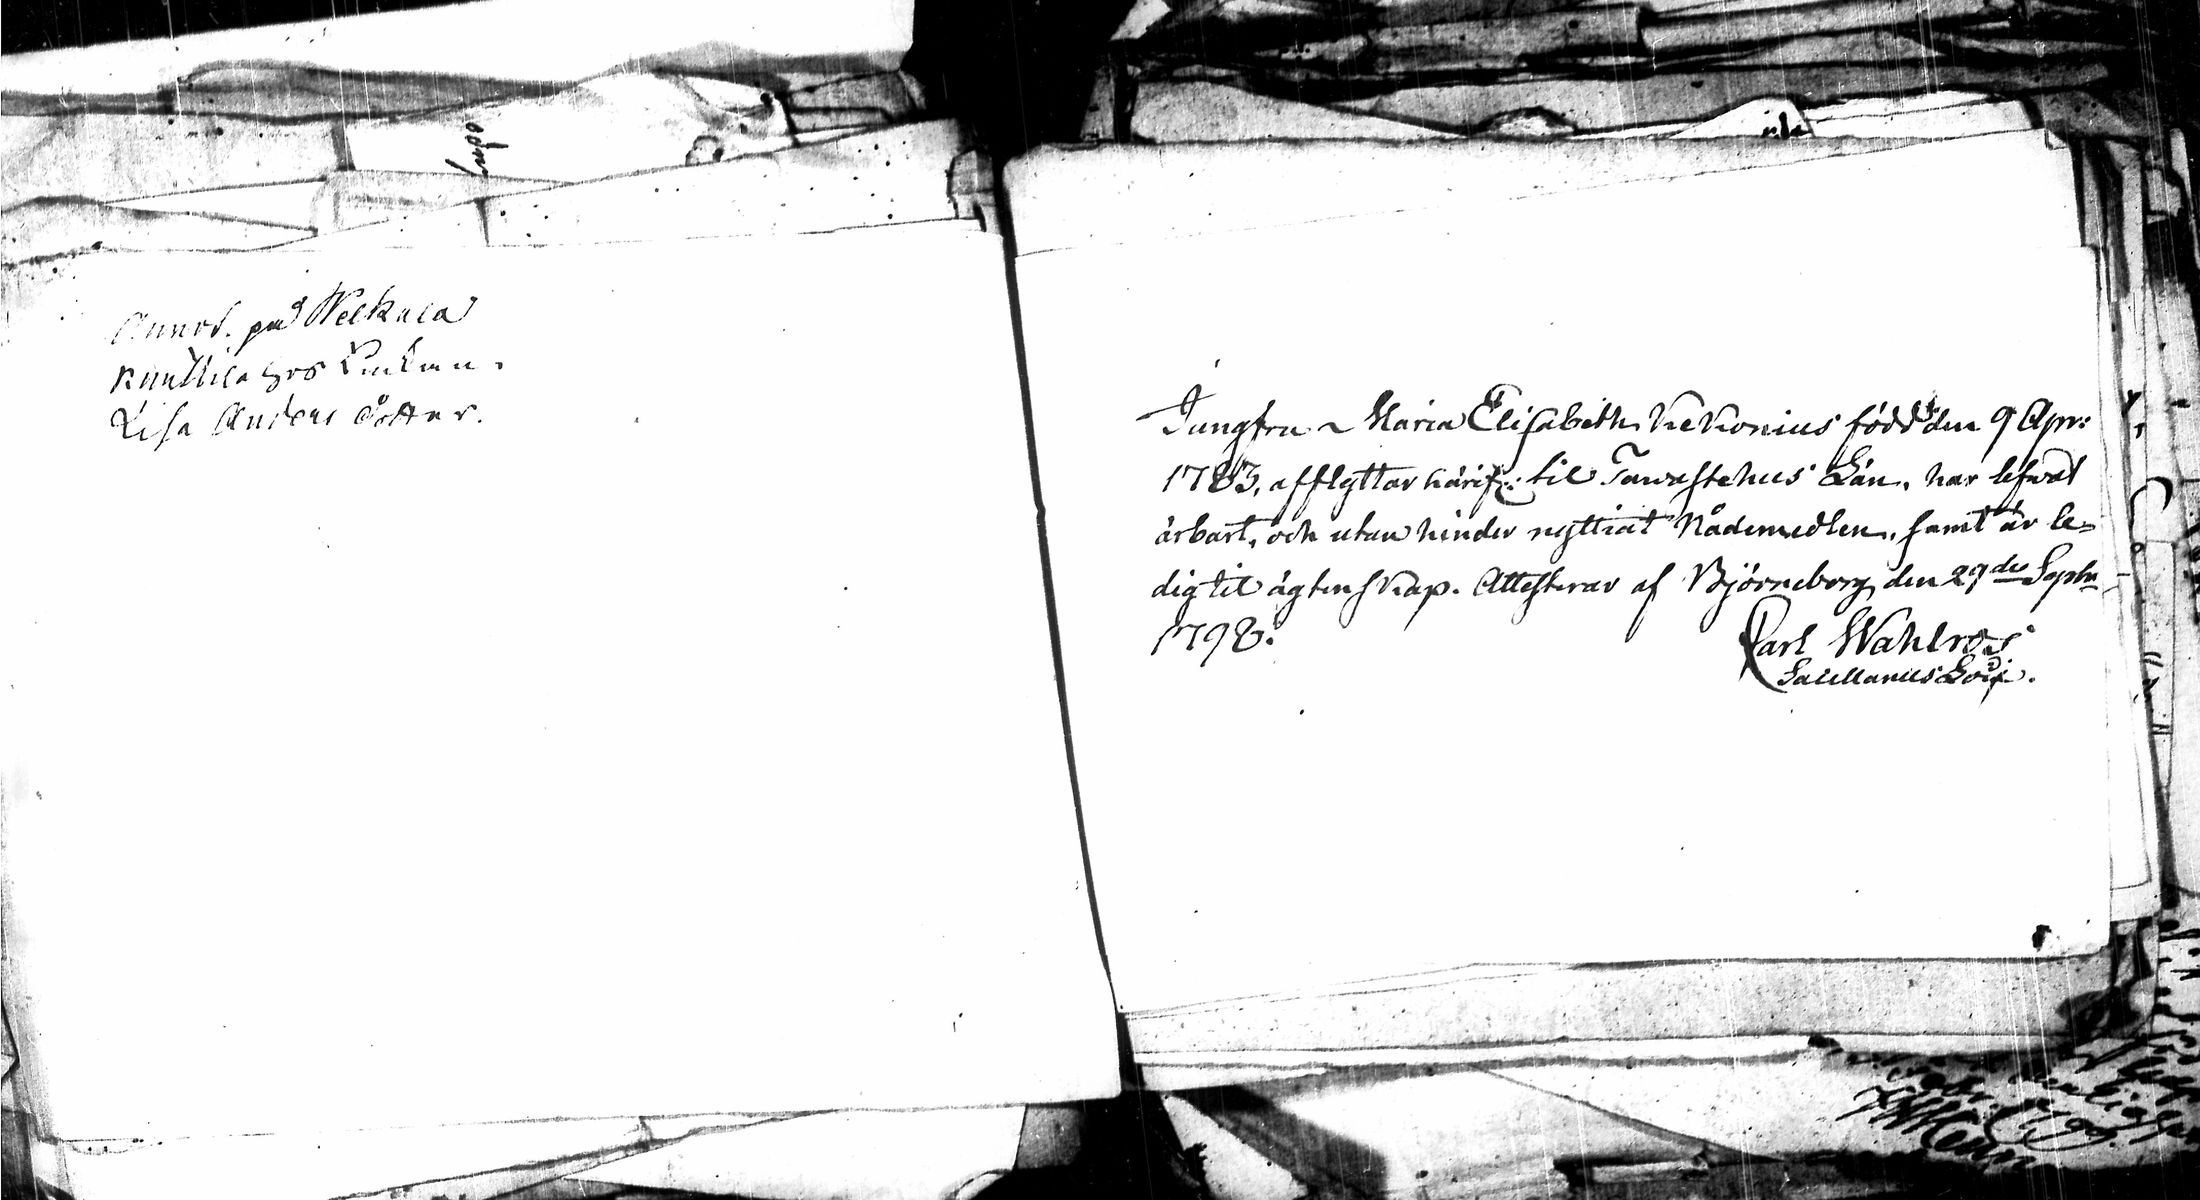 Annot. på Welkala
Knuttila hos Enkan
Lisa Anders dotter.
Jungfru Maria Elisabeth Kekonius född den 9 Apr:
1783, afflyttar härifr: til Tawastehus Län, har lefwat
ärbart, och utan hinder nyttiat Nådemedlen, samt är le-
dig til ägtenskap. Attesterar af Björneborg den 29de Septr
1798.
Carl Wahlroos
Sacellanus Loci.